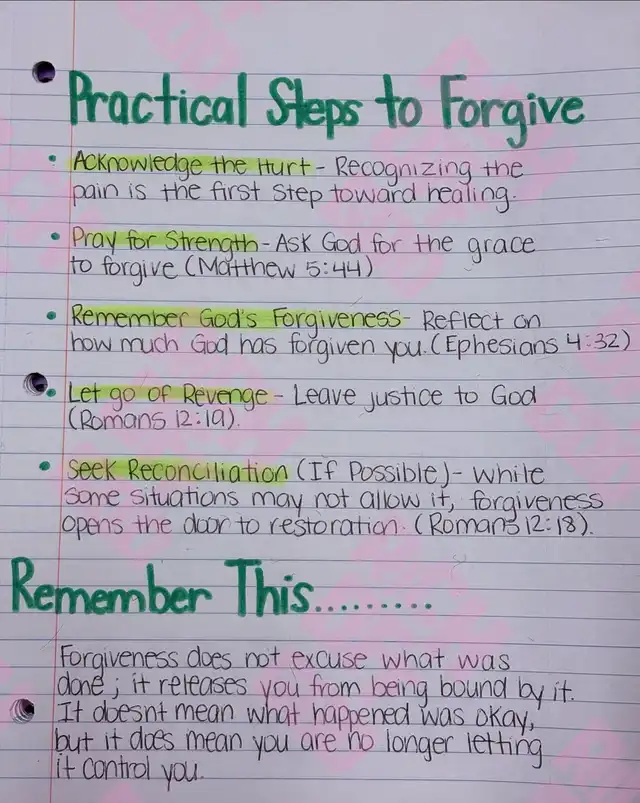 Practical Steps to Forgive
• Acknowledge the Hurt - Recognizing the
pain is the first step toward healing.
• Pray for Strength - Ask God for the grace
to forgive (Matthew 5:44)
• Remember God's Forgiveness - Reflect on
how much God has forgiven you. (Ephesians 4:32)
• Let go of Revenge - Leave justice to God
(Romans 12:19).
• Seek Reconciliation (If Possible) - While
some situations may not allow it, forgiveness
opens the door to restoration. (Romans 12:18).
Remember This.........
Forgiveness does not excuse what was
done; it releases you from being bound by it.
It doesnt mean what happened was okay,
but it does mean you are no longer letting
it control you.